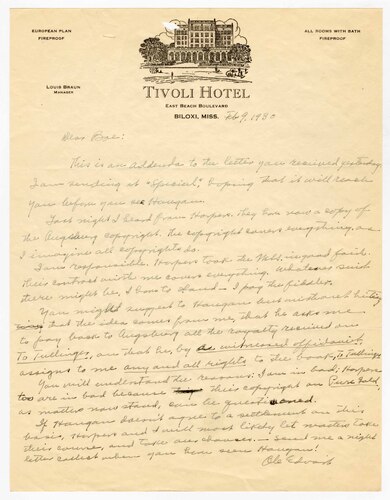 EUROPEAN PLAN
FIREPROOF
ALL ROOMS WITH BATH
FIREPROOF
LOUIS BRAUN
MANAGER
TIVOLI HOTEL
EAST BEACH BOULEVARD
BILOXI, MISS. Feb 9, 1930
Dear Boe:
This is an addenda to the letter you received yesterday
I am sending at "Special", hoping that it will reach
you before you see Haugan.
Last night I heard from Harpers, they have now a copy of
the Augsburg copyright. The copyright covers everything, as
I imagine all copyrights do.
I am responsible. Harpers took the in good faith.
Their contract with me covers everything. Whatever suit
there might be, I have to stand – I pay the fiddler.
You might suggest to Haugan but without hinting
that the idea comes from me, that he asks me
to pay back to Augsburg all the royalty received on
and that he, by witnessed affidavit,
assigns to me any and all rights to the book,
You will understand the reasons: I am in bad; Harpers
too are in bad because their copyright on Pure Gold
as matters now stand, can be questioned.
If Haugan doesn't agree to a settlement on this
basis, Harpers and I will most likely let matters take
their course, and take our chances. – Send me a night
letter collect when you have seen Haugan!
Ole Edvart